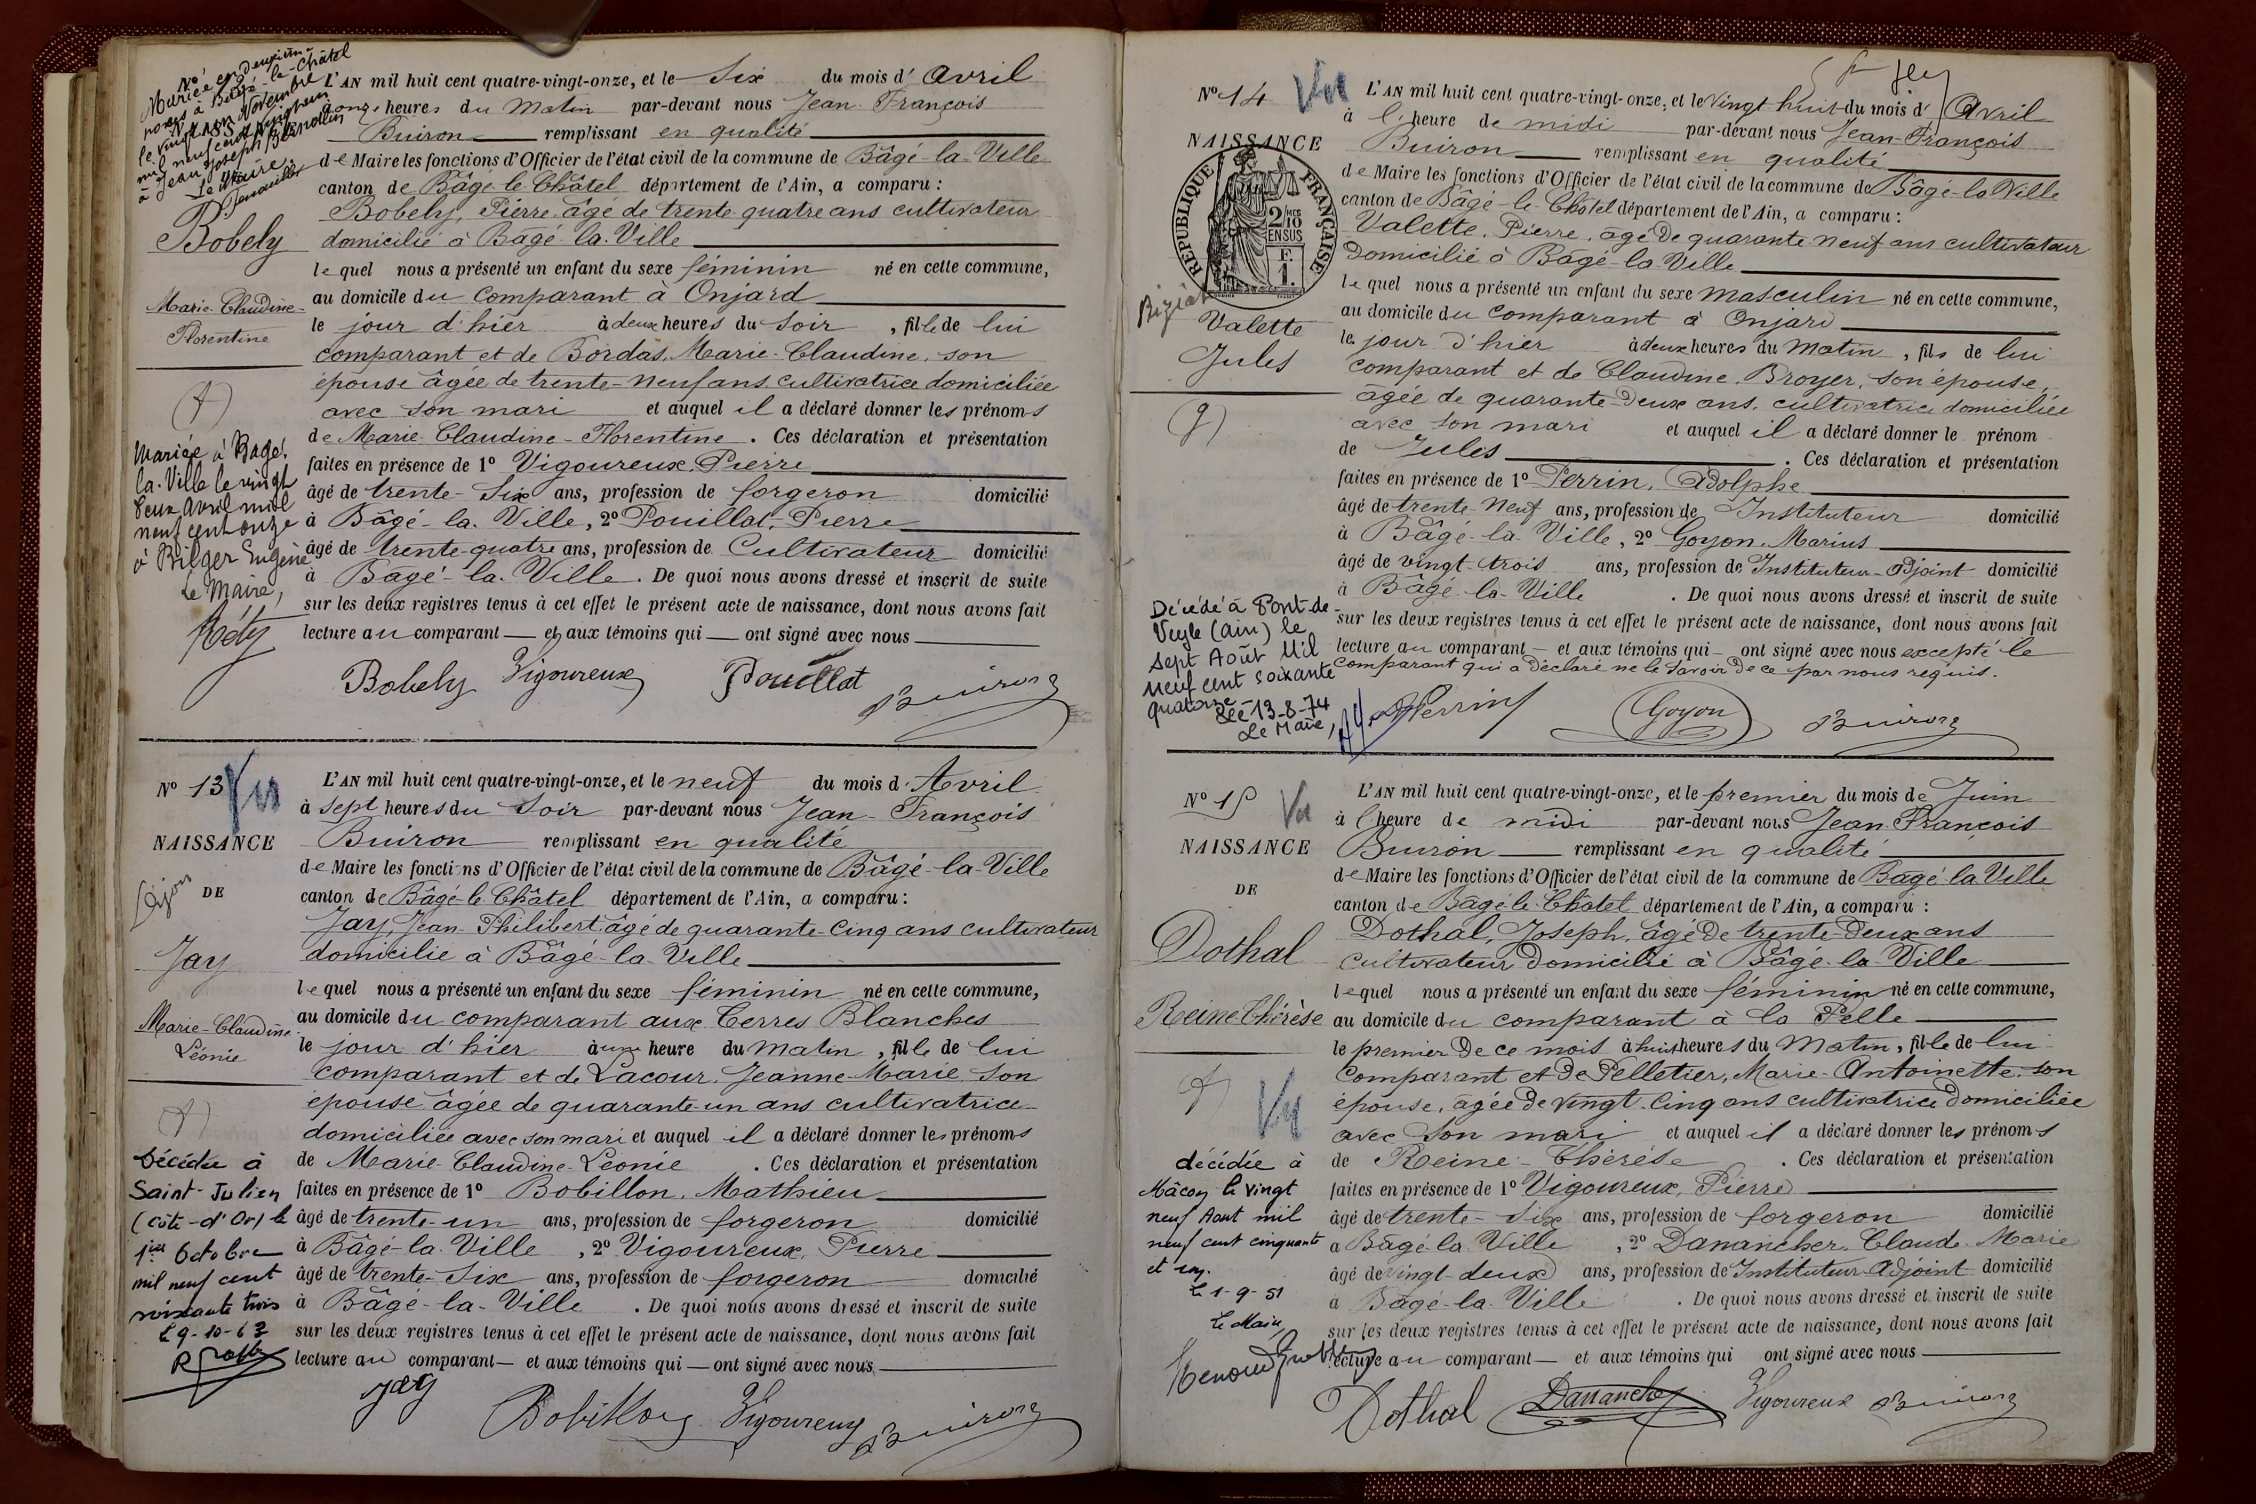 Mariée en deuxième
noces à Bâgé-le-Châtel
le vingt un Novembre
mil neuf cent
à Jean Joseph
Le Maire
Bobely
Marie-Claudine-
Florentine
Mariée à Bagé
la-Ville le vingt
deux avril mil
neuf cent onze
à Bilger Eugène
Le Maire,
Réty
L'AN mil huit cent quatre-vingt-onze, et le Six du mois d' Avril
à onze heures du Matin par-devant nous Jean-François
Buiron remplissant en qualité
de Maire les fonctions d'Officier de l'état civil de la commune de Bâgé-la-Ville
canton de Bâgé-le-Châtel département de l'Ain, a comparu :
Bobely, Pierre, âgé de trente-quatre ans cultivateur
domicilié à Bâgé-la-Ville
lequel nous a présenté un enfant du sexe féminin né en cette commune,
au domicile du comparant à Onjard
le jour d'hier à deux heures du Soir, fille de lui
comparant et de Bordas, Marie-Claudine, son
épouse âgée de trente-neuf ans cultivatrice domiciliée
avec son mari et auquel il a déclaré donner les prénoms
de Marie-Claudine-Florentine. Ces déclaration et présentation
faites en présence de 1º Vigoureux, Pierre
âgé de trente-Six ans, profession de forgeron domicilié
à Bâgé-la-Ville, 2º Pouillat, Pierre
âgé de trente-quatre ans, profession de Cultivateur domicilié
à Bâgé-la-Ville. De quoi nous avons dressé et inscrit de suite
sur les deux registres tenus à cet effet le présent acte de naissance, dont nous avons fait
lecture au comparant et aux témoins qui ont signé avec nous
Bobely Vigoureux Pouillat Buiron
Nº 13 Vu
NAISSANCE
DE
Jay
Marie-Claudine
Léonie
Décédée à
Saint-Julien
(Côte-d'Or) le
1er Octobre
mil neuf cent
soixante trois
L 9-10-63
L'AN mil huit cent quatre-vingt-onze, et le neuf du mois d' Avril
à sept heures du Soir par-devant nous Jean-François
Buiron remplissant en qualité
de Maire les fonctions d'Officier de l'état civil de la commune de Bâgé-la-Ville
canton de Bâgé-le-Châtel département de l'Ain, a comparu :
Jay, Jean-Philibert âgé de quarante-cinq ans cultivateur
domicilié à Bâgé-la-Ville
lequel nous a présenté un enfant du sexe féminin né en cette commune,
au domicile du comparant aux Terres Blanches
le jour d'hier à une heure du Matin, fille de lui
comparant et de Lacour, Jeanne-Marie, son
épouse âgée de quarante-un ans cultivatrice
domiciliée avec son mari et auquel il a déclaré donner les prénoms
de Marie-Claudine-Léonie. Ces déclaration et présentation
faites en présence de 1º Bobillon, Mathieu
âgé de trente-un ans, profession de forgeron domicilié
à Bâgé-la-Ville, 2º Vigoureux, Pierre
âgé de trente-Six ans, profession de forgeron domicilié
à Bâgé-la-Ville. De quoi nous avons dressé et inscrit de suite
sur les deux registres tenus à cet effet le présent acte de naissance, dont nous avons fait
lecture au comparant et aux témoins qui ont signé avec nous
Jay Bobillon Vigoureux Buiron
Nº 14 Vu
NAISSANCE
RÉPUBLIQUE FRANÇAISE
2 10MES
EN SUS
F.
1.
Biziat
Valette
Jules
Décédé à Pont-de-
Veyle (Ain) le
sept Août Mil
neuf cent soixante
quatorze
Le 13-8-74
Le Maire,
L'AN mil huit cent quatre-vingt-onze, et le Vingt-huit du mois d' Avril
à l'heure de midi par-devant nous Jean-François
Buiron remplissant en qualité
de Maire les fonctions d'Officier de l'état civil de la commune de Bâgé-la-Ville
canton de Bâgé-le-Châtel département de l'Ain, a comparu :
Valette, Pierre, âgé de quarante neuf ans cultivateur
domicilié à Bâgé-la-Ville
lequel nous a présenté un enfant du sexe masculin né en cette commune,
au domicile du comparant à Onjard
le jour d'hier à deux heures du Matin, fils de lui
comparant et de Claudine Broyer, son épouse,
âgée de quarante-deux ans, cultivatrice domiciliée
avec son mari et auquel il a déclaré donner le prénom
de Jules. Ces déclaration et présentation
faites en présence de 1º Perrin, Adolphe
âgé de trente-neuf ans, profession de Instituteur domicilié
à Bâgé-la-Ville, 2º Goyon, Marius
âgé de vingt-trois ans, profession de Instituteur-Adjoint domicilié
à Bâgé-la-Ville. De quoi nous avons dressé et inscrit de suite
sur les deux registres tenus à cet effet le présent acte de naissance, dont nous avons fait
lecture au comparant et aux témoins qui ont signé avec nous excepté le
comparant qui a déclaré ne le savoir de ce par nous requis.
Perrin Goyon Buiron
Nº 15 Vu
NAISSANCE
DE
Dothal
Reine-Thérèse
Vu
décédée à
Mâcon le vingt
neuf Août mil
neuf cent cinquante
et un.
L 1-9-51
Le Maire
L'AN mil huit cent quatre-vingt-onze, et le premier du mois de Juin
à l'heure de midi par-devant nous Jean-François
Buiron remplissant en qualité
de Maire les fonctions d'Officier de l'état civil de la commune de Bâgé-la-Ville
canton de Bâgé-le-Châtel département de l'Ain, a comparu :
Dothal, Joseph, âgé de trente-deux ans
cultivateur domicilié à Bâgé-la-Ville
lequel nous a présenté un enfant du sexe féminin né en cette commune,
au domicile du comparant à la Pelle
le premier de ce mois à huit heures du Matin, fille de lui
comparant et de Pelletier, Marie-Antoinette, son
épouse, âgée de vingt-cinq ans cultivatrice domiciliée
avec son mari et auquel il a déclaré donner les prénoms
de Reine-Thérèse. Ces déclaration et présentation
faites en présence de 1º Vigoureux, Pierre
âgé de trente-six ans, profession de forgeron domicilié
à Bâgé-la-Ville, 2º Danancher, Claude-Marie
âgé de vingt-deux ans, profession de Instituteur-Adjoint domicilié
à Bâgé-la-Ville. De quoi nous avons dressé et inscrit de suite
sur les deux registres tenus à cet effet le présent acte de naissance, dont nous avons fait
lecture au comparant et aux témoins qui ont signé avec nous
Dothal Danancher Vigoureux Buiron